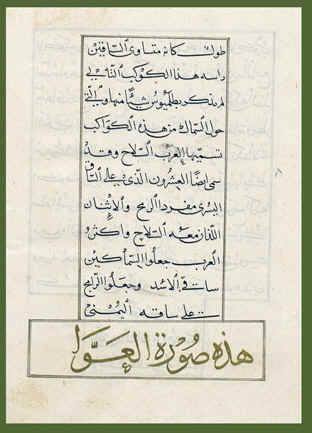 متساوى الساقين
راسه هذا الكوكب
لم يذكر بطلميوس شيئا منها
حول السماك من هذه الكواكب
تسميها العرب السلاح وقد
العشرون الذى على الساق
اليسرى مفرد الرمح والاثنان
اللذان معه السلاح واكثر
العرب جعلوا السماكين
الاسد وجعلوا الرامح
على ساقه اليمنى
هذه صورة العوّا